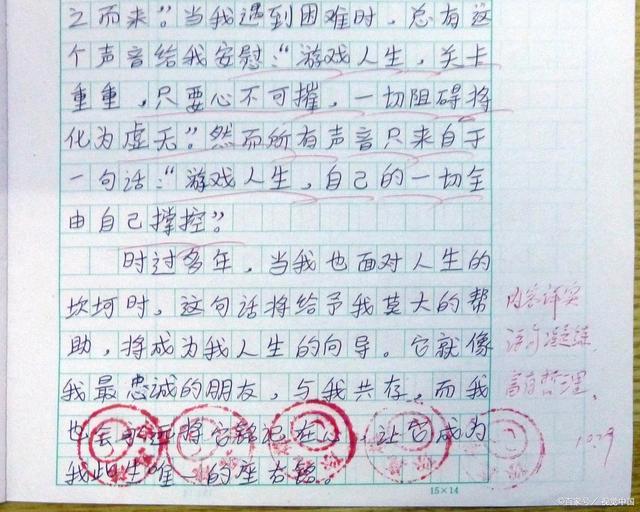 之而来”。当我遇到困难时，总有这
个声音给我安慰：“游戏人生，关卡
重重，只要心不可摧，一切阻碍将
化为虚无”。然而所有声音只来自于
一句话：“游戏人生，自己的一切全
由自己撑控”。
时过多年，当我也面对人生的
坎坷时。这句话将给予我莫大的帮
助，将成为我人生的向导。它就像
我最忠诚的朋友，与我共存。而我
也会永远将它铭记在心，让它成为
我此生唯一的座右铭。
内容详实
语句凝练
富有哲理
10.29
15×14
©百家号／视觉中国